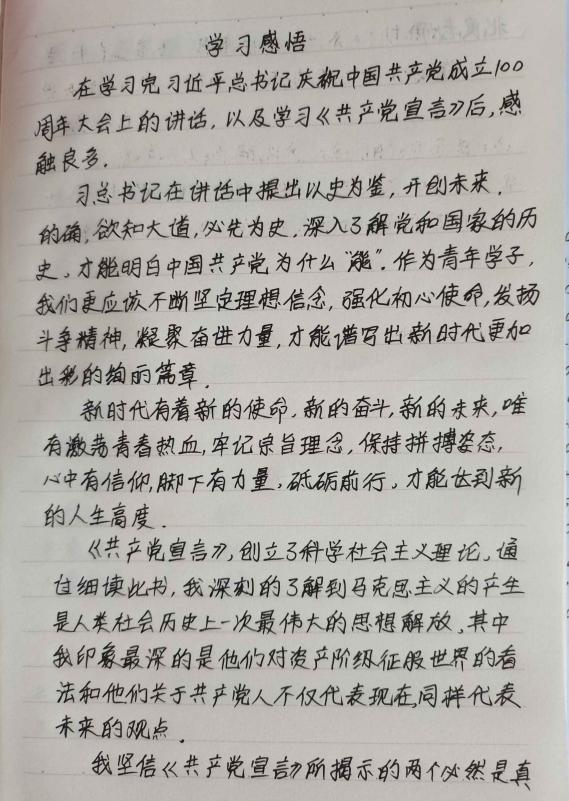 学习感悟
在学习完习近平总书记庆祝中国共产党成立100
周年大会上的讲话，以及学习《共产党宣言》后，感
触良多.
习总书记在讲话中提出以史为鉴，开创未来.
的确，欲知大道，必先为史，深入了解党和国家的历
史，才能明白中国共产党为什么"能"。作为青年学子，
我们更应该不断坚定理想信念，强化初心使命，发扬
斗争精神，凝聚奋进力量，才能谱写出新时代更加
出彩的绚丽篇章.
新时代有着新的使命，新的奋斗，新的未来，唯
有激荡青春热血，牢记宗旨理念，保持拼搏姿态，
心中有信仰，脚下有力量，砥砺前行，才能达到新
的人生高度.
《共产党宣言》，创立了科学社会主义理论，通
过细读此书，我深刻的了解到马克思主义的产生
是人类社会历史上一次最伟大的思想解放，其中
我印象最深的是他们对资产阶级征服世界的看
法和他们关于共产党人不仅代表现在，同样代表
未来的观点.
我坚信《共产党宣言》所揭示的两个必然是真